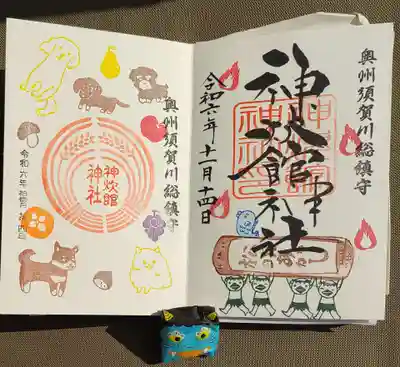 奥州須賀川総鎮守
神炊館神社
令和六年十一月十四日
奥州須賀川総鎮守
神炊館
神社
令和六年